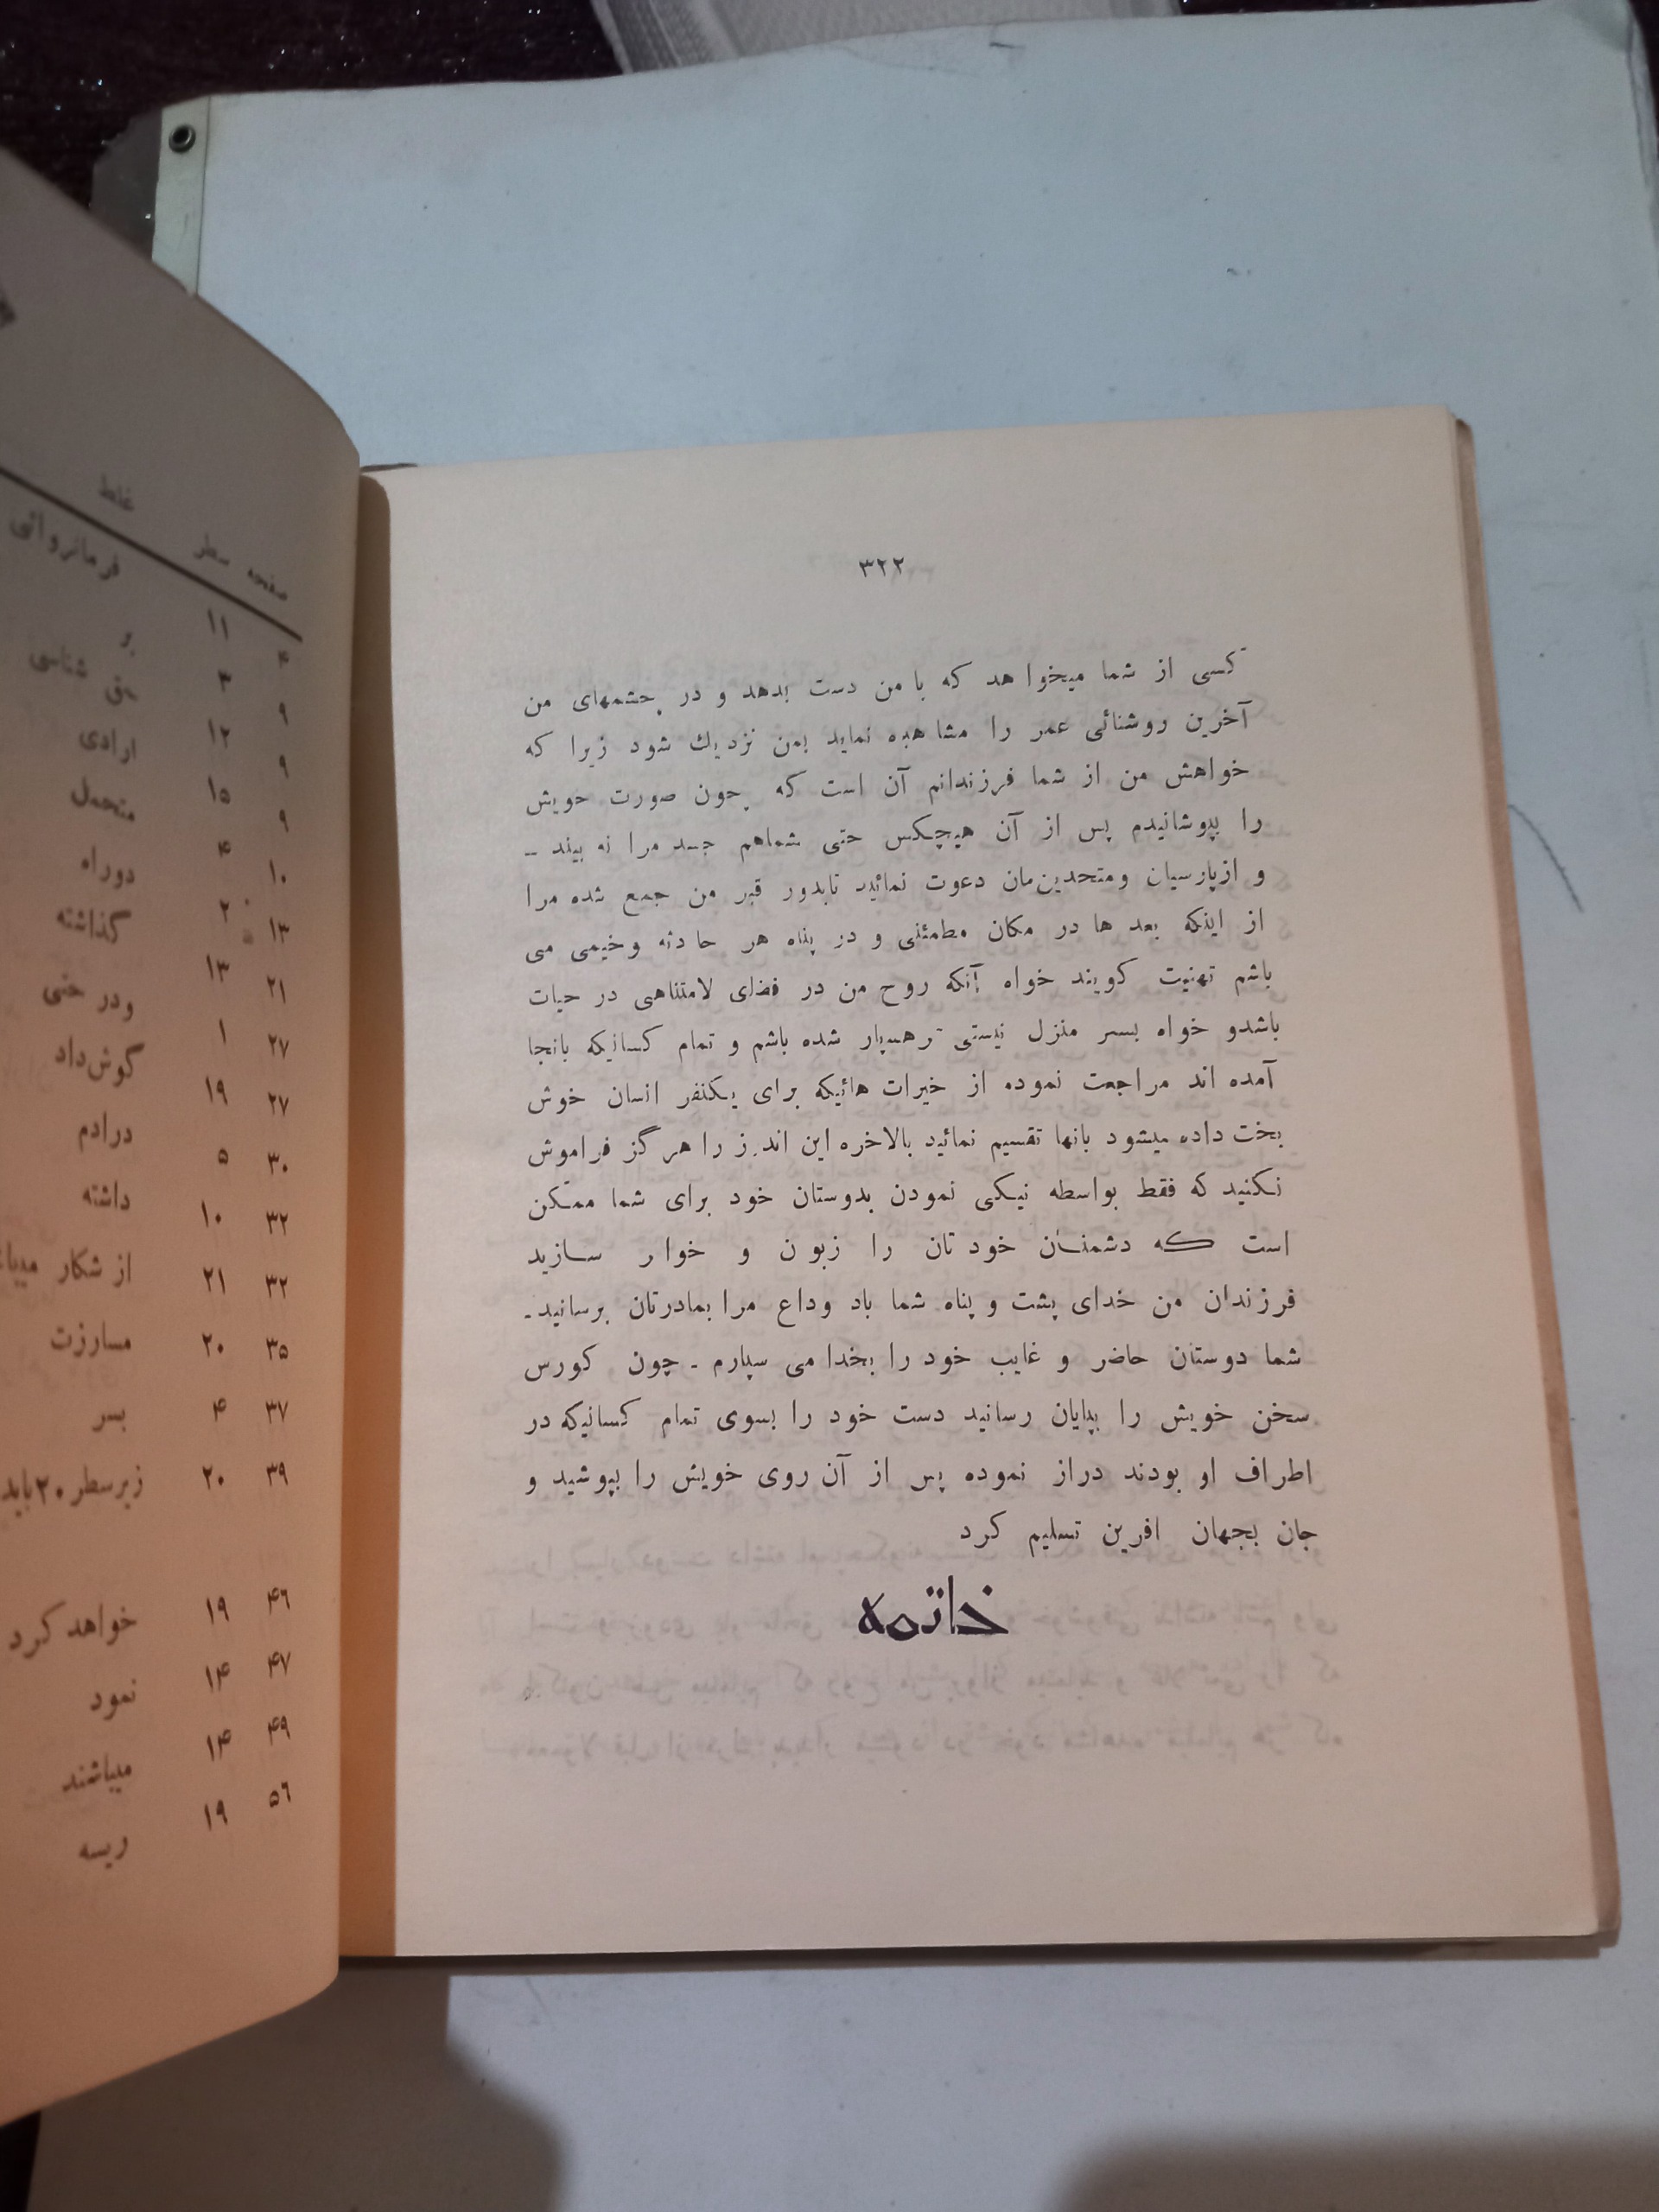 ۳۲۲
کسی از شما میخواهد که با من دست بدهد و در چشمهای من
آخرین روشنائی عمر را مشاهده نماید بمن نزدیك شود زیرا که
خواهش من از شما فرزندانم آن است که چون صورت خویش
را بپوشانیدم پس از آن هیچکس حتی شماهم جسد مرا نه بیند ـ
و ازپارسیان ومتحدین‌مان دعوت نمائید تابدور قبر من جمع شده مرا
از اینکه بعد ها در مکان مطمئنی و در پناه هر حادثه وخیمی می
باشم تهنیت کویند خواه آنکه روح من در فضای لامتناهی در حیات
باشدو خواه بسر منزل نیستی رهسپار شده باشم و تمام کسانیکه بانجا
آمده اند مراجعت نموده از خیرات هائیکه برای یکنفر انسان خوش
بخت داده میشود بانها تقسیم نمائید بالاخره این اندرز را هرگز فراموش
نکنید که فقط بواسطه نیکی نمودن بدوستان خود برای شما ممکن
است که دشمنان خودتان را زبون و خوار سازید
فرزندان من خدای پشت و پناه شما باد وداع مرا بمادرتان برسانید ـ
شما دوستان حاضر و غایب خود را بخدا می سپارم ـ چون کورس
سخن خویش را بپایان رسانید دست خود را بسوی تمام کسانیکه در
اطراف او بودند دراز نموده پس از آن روی خویش را بپوشید و
جان بجهان افرین تسلیم کرد
خاتمه
صفحه سطر غلط
۴ ۱۱ فرمانروائی
۹ ۳ بر
۹ ۱۲ حق شناسی
۹ ۱۵ ارادی
۱۰ ۴ متحمل
۱۳ ۲ دوراه
۲۱ ۱۳ گذاشته
۲۷ ۱ ودر حتی
۲۷ ۱۹ گوش‌داد
۳۰ ۵ درادم
۳۲ ۱۰ داشته
۳۲ ۲۱ از شکار
۳۵ ۲۰ مسارزت
۳۷ ۴ بسر
۳۹ ۲۰ زیرسطر ۲۰ باید
۴۶ ۱۹ خواهد کرد
۴۷ ۱۴ نمود
۴۹ ۱۴ میباشند
۵۶ ۱۹ ریسه